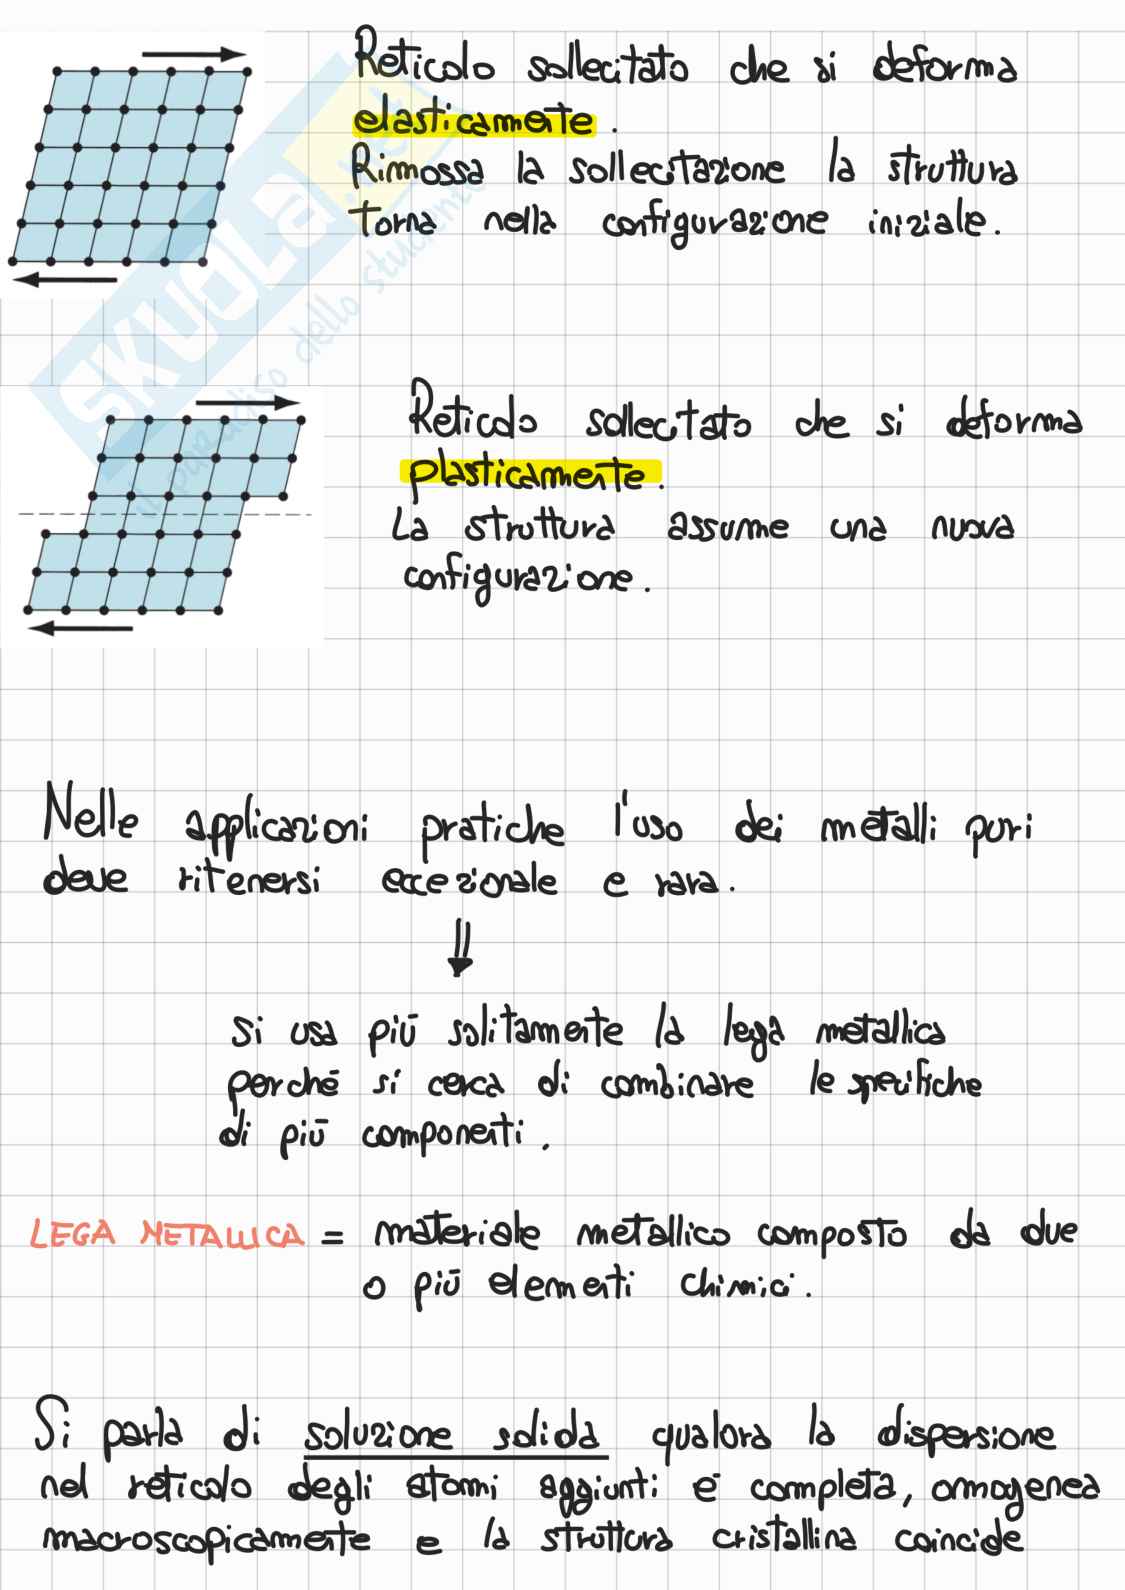 Reticolo sollecitato che si deforma
elasticamente.
Rimossa la sollecitazione la struttura
torna nella configurazione iniziale.
SKUOLA.net
il paradiso dello studente
Reticolo sollecitato che si deforma
plasticamente.
La struttura assume una nuova
configurazione.
Nelle applicazioni pratiche l'uso dei metalli puri
deve ritenersi eccezionale e rara.
⇓
si usa più solitamente la lega metallica
perché si cerca di combinare le specifiche
di più componenti.
LEGA METALLICA = materiale metallico composto da due
o più elementi chimici.
Si parla di soluzione solida qualora la dispersione
nel reticolo degli atomi aggiunti è completa, omogenea
macroscopicamente e la struttura cristallina coincide